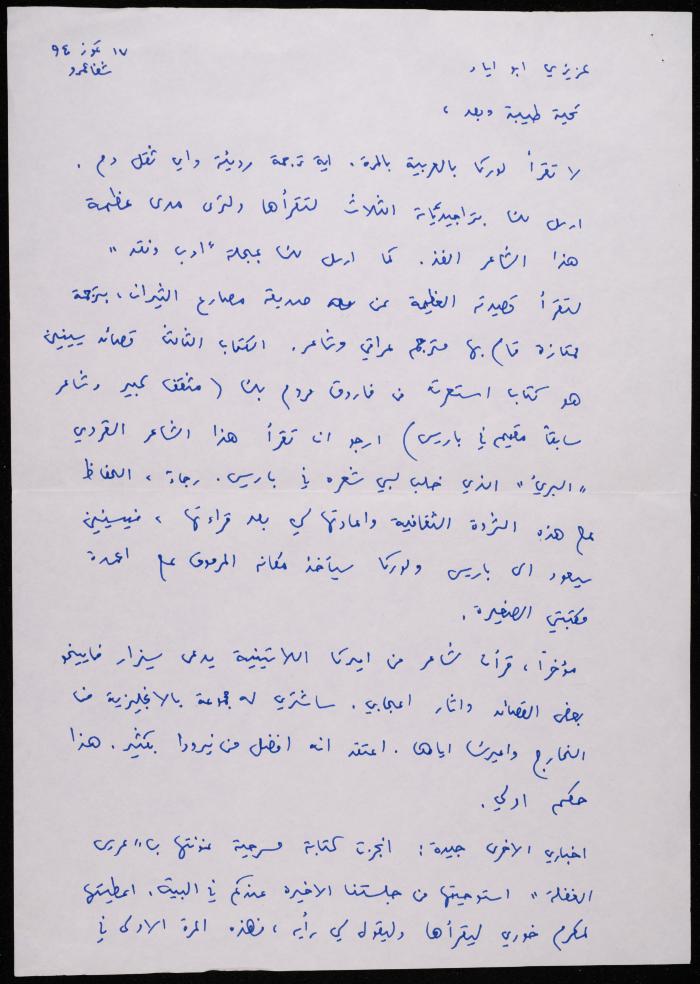 ١٧ تموز ٩٤
شفاعمرو
عزيزي ابو اياد
تحية طيبة وبعد ،
لا تقرأ لوركا بالعربية بالمرة. اية ترجمة رديئة واي ثقل دم .
ارسل لك بتراجيدياته الثلاث لتقرأها ولترى مدى عظمة
هذا الشاعر الفذ. كما ارسل لك بمجلة "ادب ونقد"
لتقرأ قصيدته العظيمة عن صديقه مصارع الثيران، بترجمة
ممتازة قام بها مترجم عراقي وشاعر. الكتاب الثالث قصائد يسينين
هو كتاب استعرته من فاروق مردم بك (مثقف كبير وشاعر
سابقاً مقيم في باريس) ارجو ان تقرأ هذا الشاعر القروي
"البريء" الذي خلب لبي شعره في باريس. رجاءً، الحفاظ
على هذه الثروة الثقافية واعادتها لي بعد قراءتها ، فيسينين
سيعود الى باريس ولوركا سيأخذ مكانه المرموق على اعمدة
مكتبتي الصغيرة.
مؤخراً، قرأت لشاعر من اميركا اللاتينية يدعى سيزار فاييخو
بعض القصائد واثار اعجابي. ساشتري له مجموعة بالانجليزية من
الخارج واعيرك اياها. اعتقد انه افضل من نيرودا بكثير. هذا
حكم اولي.
اخباري الاخرى جيدة: انجزت كتابة مسرحية عنونتها ب"عرس
الغفلة" استوحيتها من جلستنا الاخيرة عندكم في البيت. اعطيتها
لمكرم خوري ليقرأها وليقول لي رأيه ، فهذه المرة الاولى في